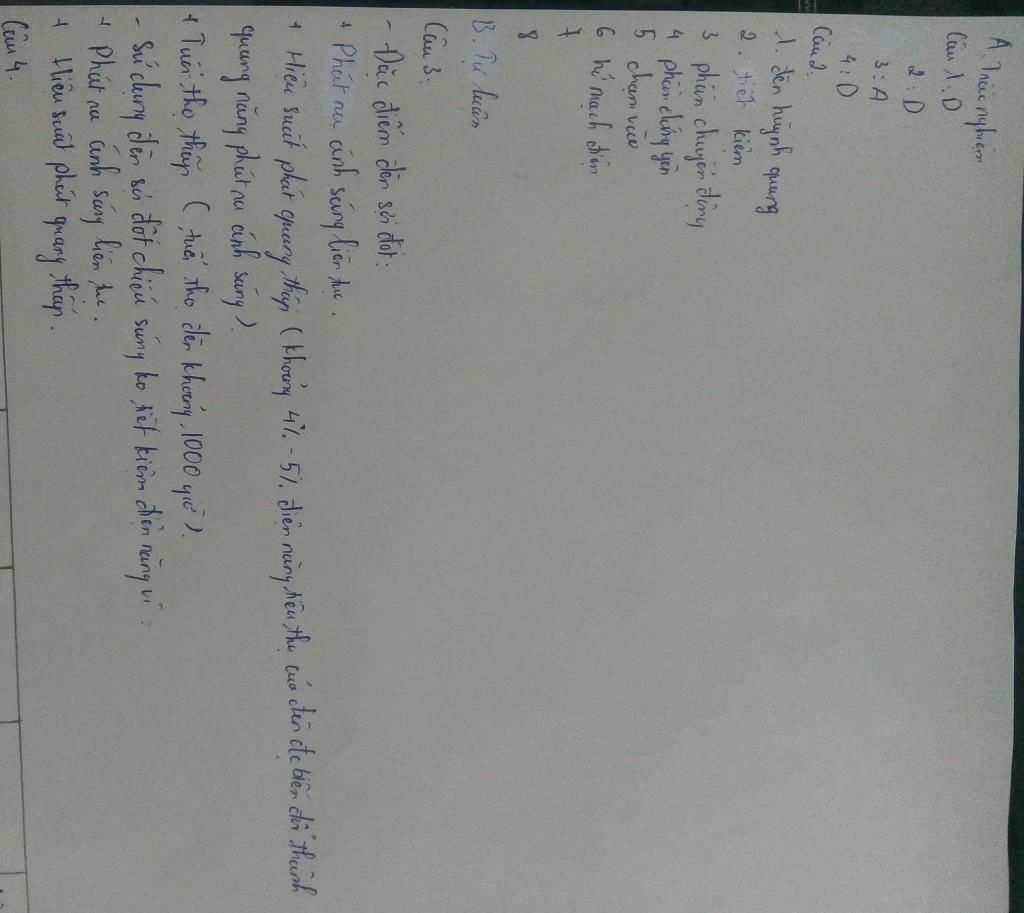 A Trắc nghiệm
Câu 1: D
2: D
3: A
4: D
Câu 2.
1. đèn huỳnh quang
2. tiết kiệm
3 phần chuyển động
4 phần đứng yên
5 chạm vào
6 hở mạch điện
7
8
B. Tự luận
Câu 3:
- Đặc điểm đèn sợi đốt:
+ Phát ra ánh sáng liên tục.
+ Hiệu suất phát quang thấp (khoảng 4% - 5% điện năng tiêu thụ của đèn đc biến đổi thành
quang năng phát ra ánh sáng).
+ Tuổi thọ thấp (tuổi thọ đèn khoảng 1000 giờ).
- Sử dụng đèn sợi đốt chiếu sáng ko tiết kiệm điện năng vì:
+ Phát ra ánh sáng liên tục.
+ Hiệu suất phát quang thấp.
Câu 4.